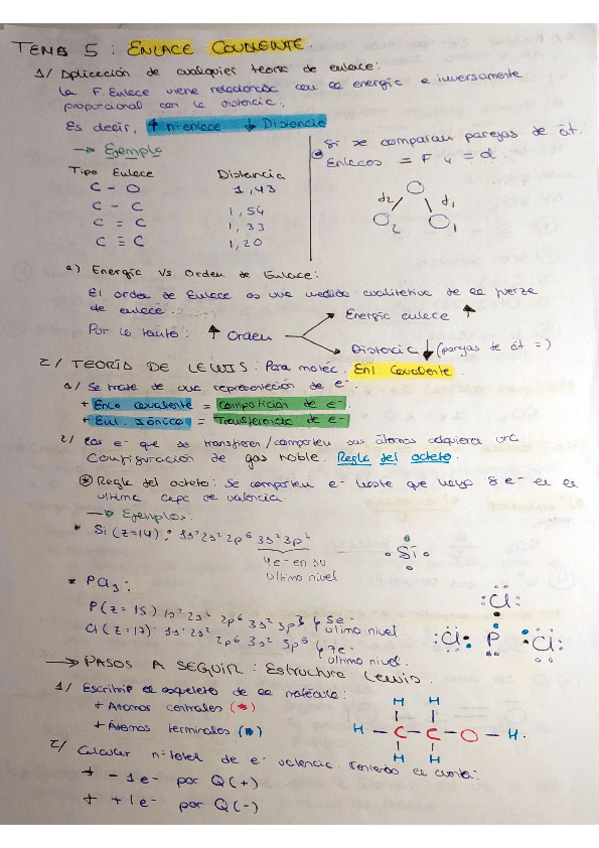 TEMA 5 : ENLACE COVALENTE.
1/ Aplicación de cualquier teoría de enlace:
La F. Enlace viene relacionada con la energía e inversamente
proporcional con la distancia.
Es decir, ↑ nº enlace ↓ Distancia
→ Ejemplo
Tipo Enlace Distancia
C - O 1,43
C - C 1,54
C = C 1,33
C ≡ C 1,20
Si se comparan parejas de át.
Enlaces = F y = d.
d2 d1
O
O2 O1
a) Energía vs Orden de Enlace:
El orden de Enlace es una medida cualitativa de la fuerza
de enlace
Por lo tanto: ↑ Orden
Energía enlace ↑
Distancia ↓ (parejas de át =)
2/ TEORÍA DE LEWIS : Para moléc. Enl. Covalente
1/ Se trata de una representación de e-.
+ Enl. covalente = Compartición de e-.
+ Enl. Iónico = Transferencia de e-
2/ Los e- que se transfieren/comparten sus átomos adquiera una
Configuración de gas noble. Regla del octeto.
* Regla del octeto: Se comparten e- hasta que haya 8 e- en la
última capa de valencia.
→ Ejemplos:
* Si (Z=14) : 1s² 2s² 2p⁶ 3s² 3p²
4e- en su
último nivel
Si
* PCl3:
P (Z=15) 1s² 2s² 2p⁶ 3s² 3p³ 5e-
último nivel
Cl (Z=17) 1s² 2s² 2p⁶ 3s² 3p⁵ 7e-
último nivel.
:Cl:
:Cl: P :Cl:
→ PASOS A SEGUIR : Estructura Lewis.
1/ Escribir el esqueleto de la molécula:
+ Átomos centrales (*)
+ Átomos terminales (*)
H H
H - C - C - O - H.
H H
2/ Calcular nº total de e- valencia. Teniendo en cuenta:
+ - 1e- por Q(+)
+ + 1e- por Q(-)